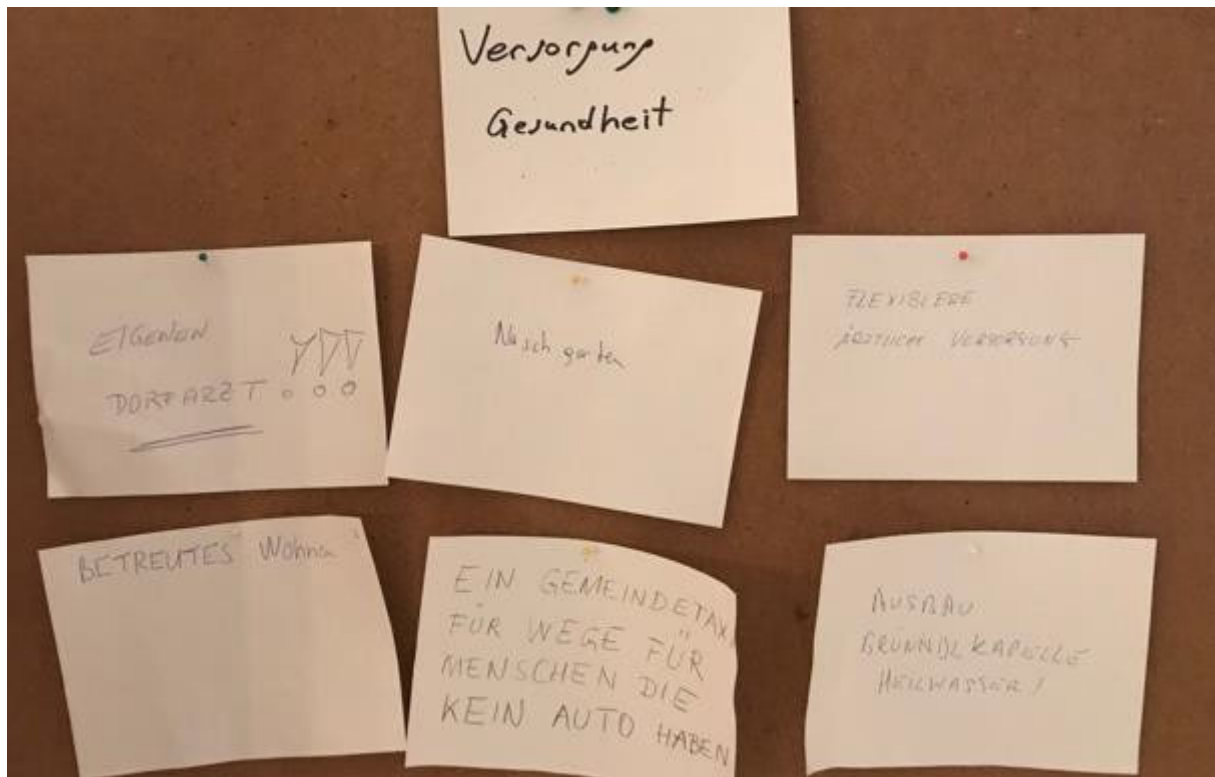 Versorgung
Gesundheit
EIGENEN
DORFARZT !!!
Naschgarten
FLEXIBLERE
ÄRZTLICHE VERSORGUNG
BETREUTES Wohnen
EIN GEMEINDETAXI
FÜR WEGE FÜR
MENSCHEN DIE
KEIN AUTO HABEN
AUSBAU
BRÜNNDLKAPELLE
HEILWASSER!